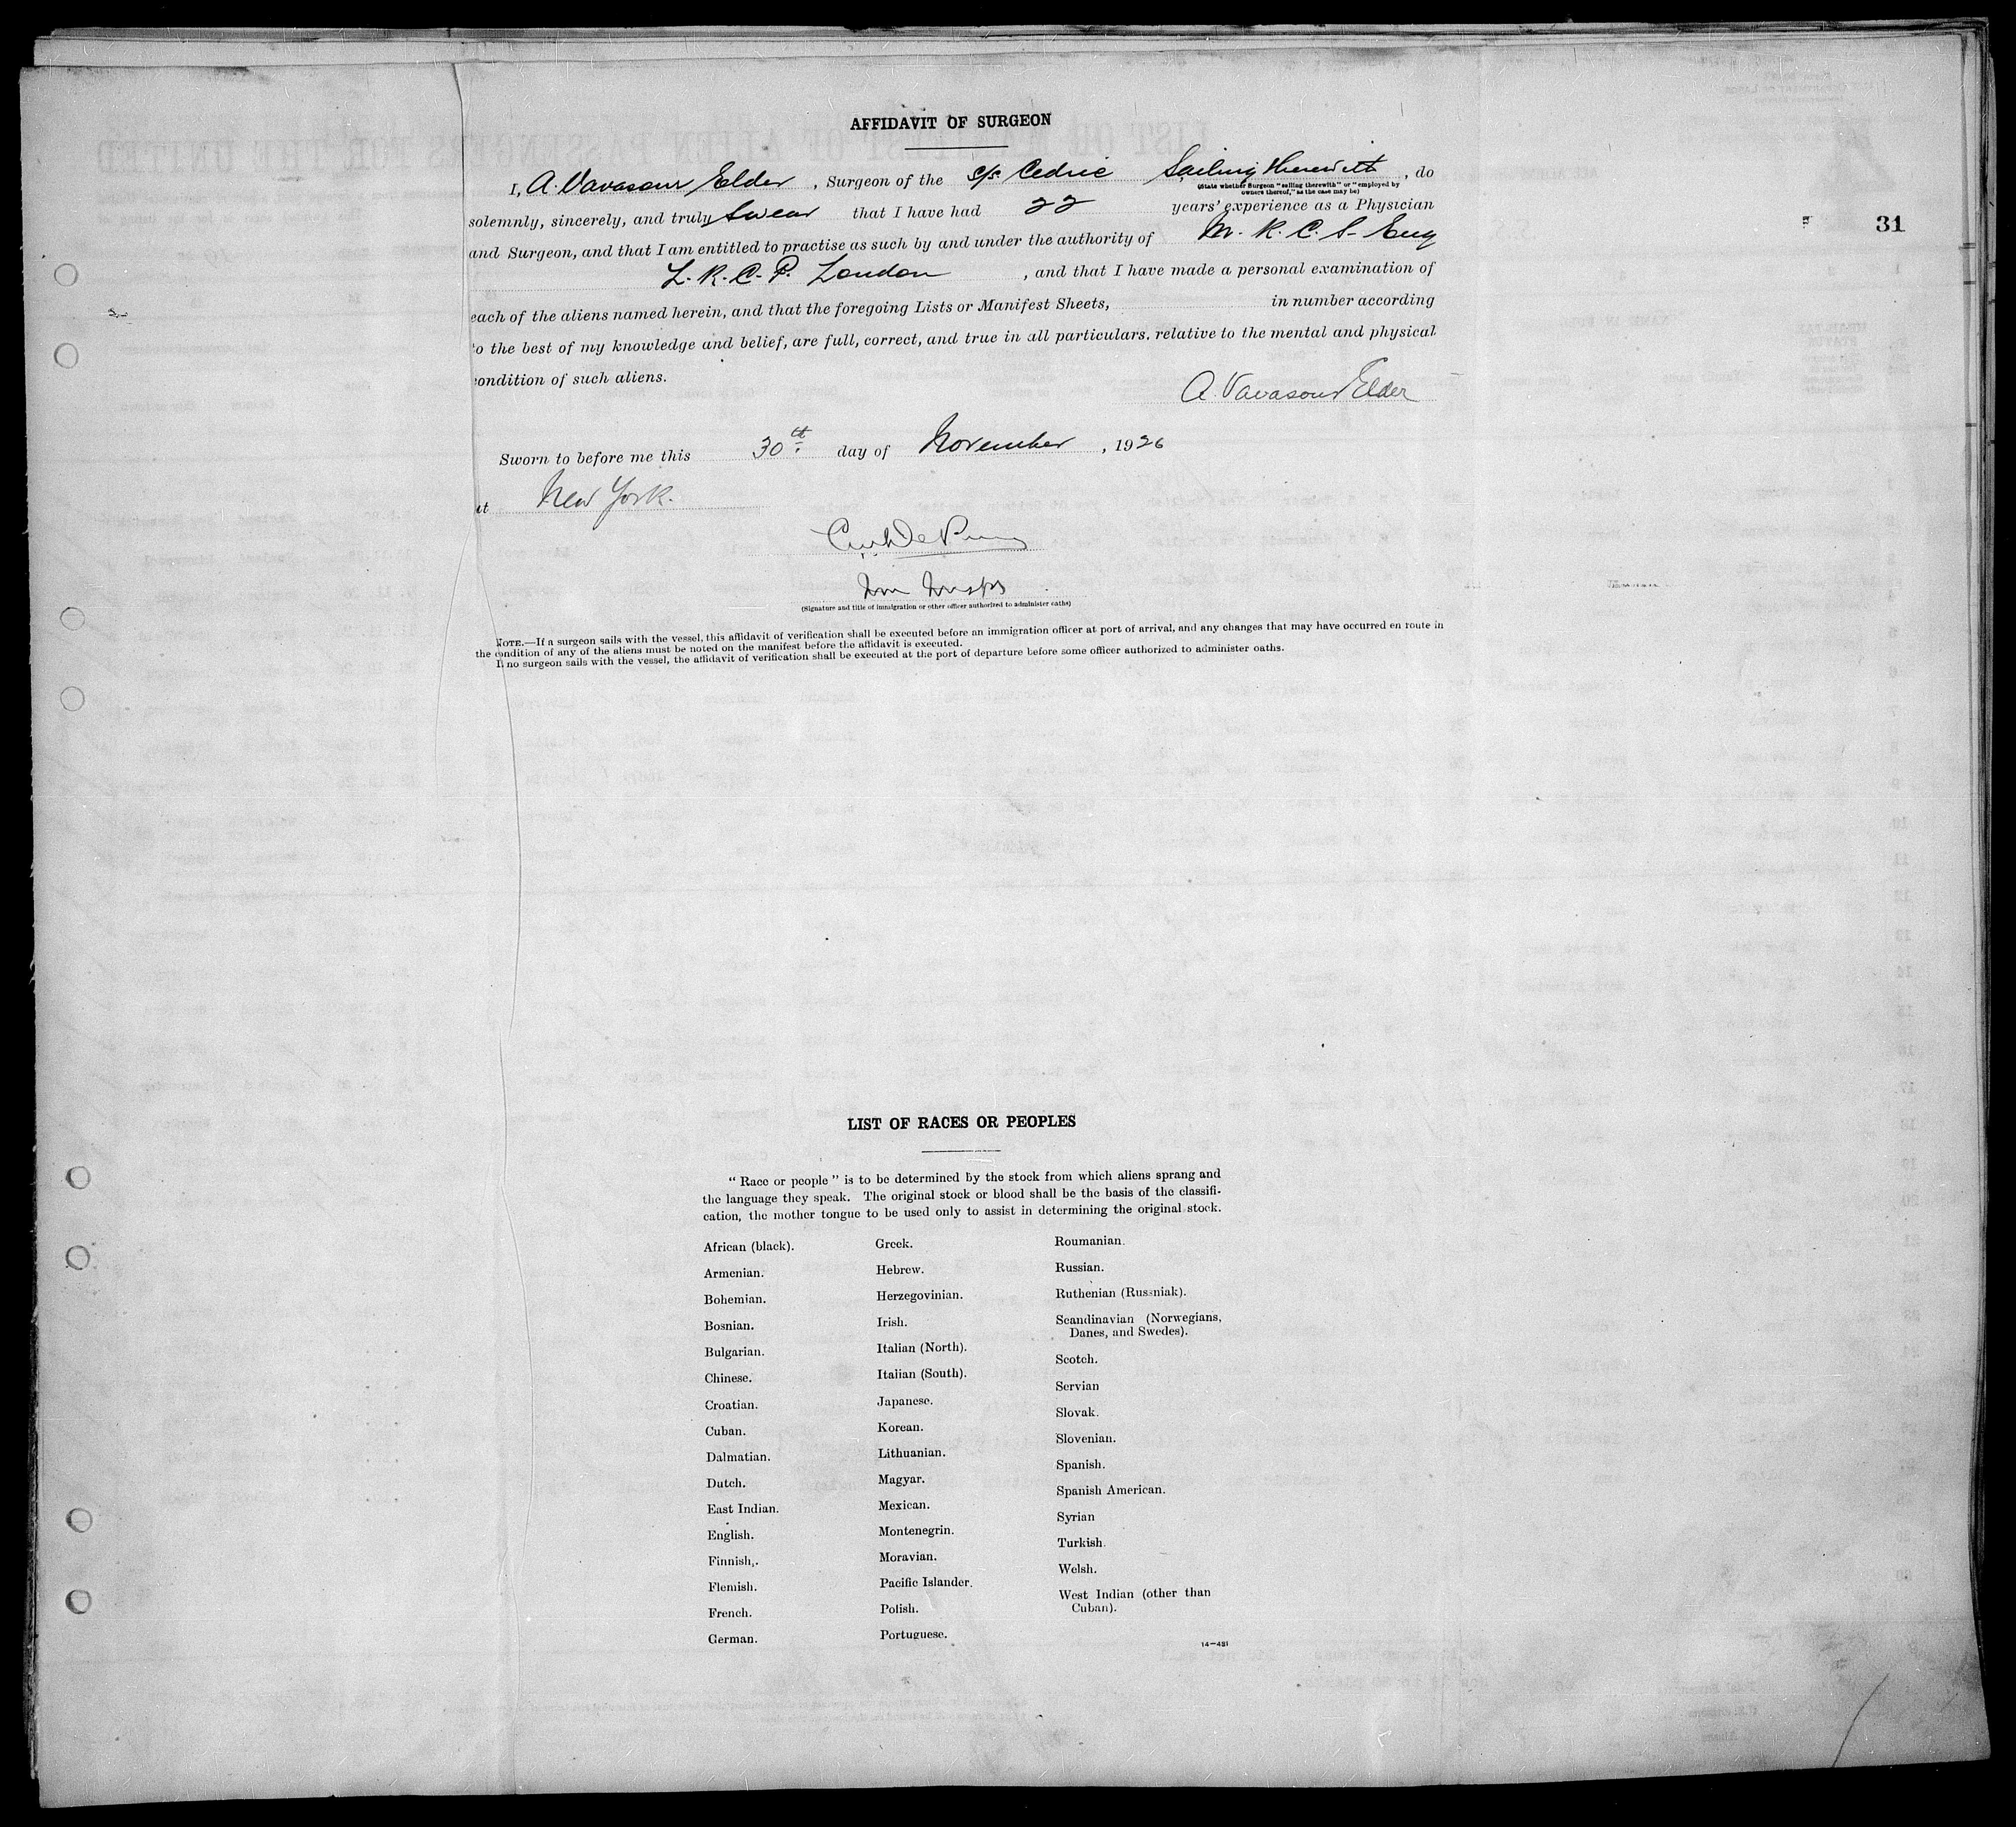 AFFIDAVIT OF SURGEON
I, A. Vavasour Elder, Surgeon of the s/s Cedric Sailing therewith, do
(State whether Surgeon "sailing therewith" or "employed by
owners thereof," as the case may be)
solemnly, sincerely, and truly swear that I have had 22 years' experience as a Physician
31
and Surgeon, and that I am entitled to practise as such by and under the authority of M.R.C.S. Eng
L.R.C.P. London, and that I have made a personal examination of
each of the aliens named herein, and that the foregoing Lists or Manifest Sheets, in number according
to the best of my knowledge and belief, are full, correct, and true in all particulars, relative to the mental and physical
condition of such aliens.
A. Vavasour Elder
Sworn to before me this 30th day of November, 1926
at New York.
(Signature and title of immigration or other officer authorized to administer oaths)
NOTE.—If a surgeon sails with the vessel, this affidavit of verification shall be executed before an immigration officer at port of arrival, and any changes that may have occurred en route in
the condition of any of the aliens must be noted on the manifest before the affidavit is executed.
If no surgeon sails with the vessel, the affidavit of verification shall be executed at the port of departure before some officer authorized to administer oaths.
LIST OF RACES OR PEOPLES
"Race or people" is to be determined by the stock from which aliens sprang and
the language they speak. The original stock or blood shall be the basis of the classifi-
cation, the mother tongue to be used only to assist in determining the original stock.
African (black).
Armenian.
Bohemian.
Bosnian.
Bulgarian.
Chinese.
Croatian.
Cuban.
Dalmatian.
Dutch.
East Indian.
English.
Finnish.
Flemish.
French.
German.
Greek.
Hebrew.
Herzegovinian.
Irish.
Italian (North).
Italian (South).
Japanese.
Korean.
Lithuanian.
Magyar.
Mexican.
Montenegrin.
Moravian.
Pacific Islander.
Polish.
Portuguese.
Roumanian.
Russian.
Ruthenian (Russniak).
Scandinavian (Norwegians,
Danes, and Swedes).
Scotch.
Servian
Slovak.
Slovenian.
Spanish.
Spanish American.
Syrian
Turkish.
Welsh.
West Indian (other than
Cuban).
14—431